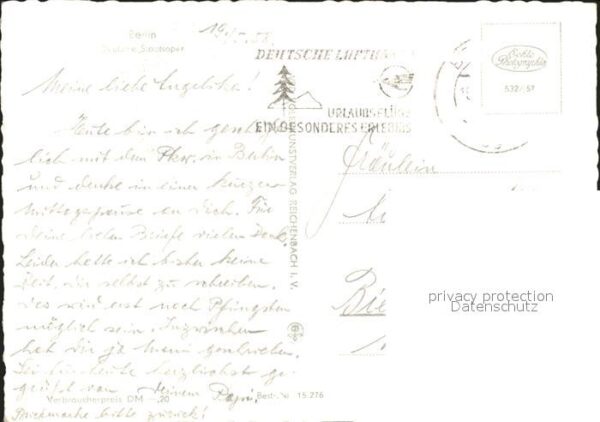 Berlin
Deutsche Staatsoper
19.5.58
DEUTSCHE LUFTHANSA
URLAUBSFLÜGE
EIN BESONDERES ERLEBNIS
Echte
Photographie
532/57
Meine liebe Angelika!
Heute bin ich geschäft-
lich mit dem Pkw. in Berlin
und denke in einer kurzen
Mittagspause an Dich. Für
Deine lieben Briefe vielen Dank.
Leider hatte ich bisher keine
Zeit, Dir selbst zu schreiben.
Es wird erst nach Pfingsten
möglich sein. Inzwischen
hat Dir ja Mami geschrieben.
Sei für heute herzlichst ge-
grüßt von Deinem Papi.
Briefmarke bitte zurück!
KUNSTVERLAG REICHENBACH I. V.
Fräulein
Verbraucherpreis DM -,20
Best.-Nr. 15 276
privacy protection
Datenschutz